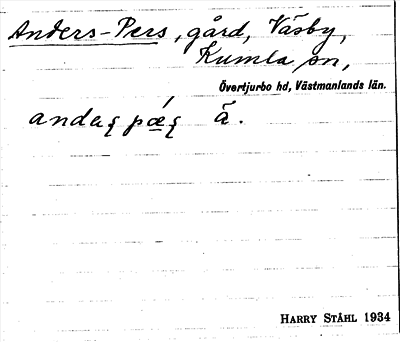 Anders-Pers, gård, Väsby,
Kumla sn,
Övertjurbo hd, Västmanlands län.
ā.
HARRY STÅHL 1934